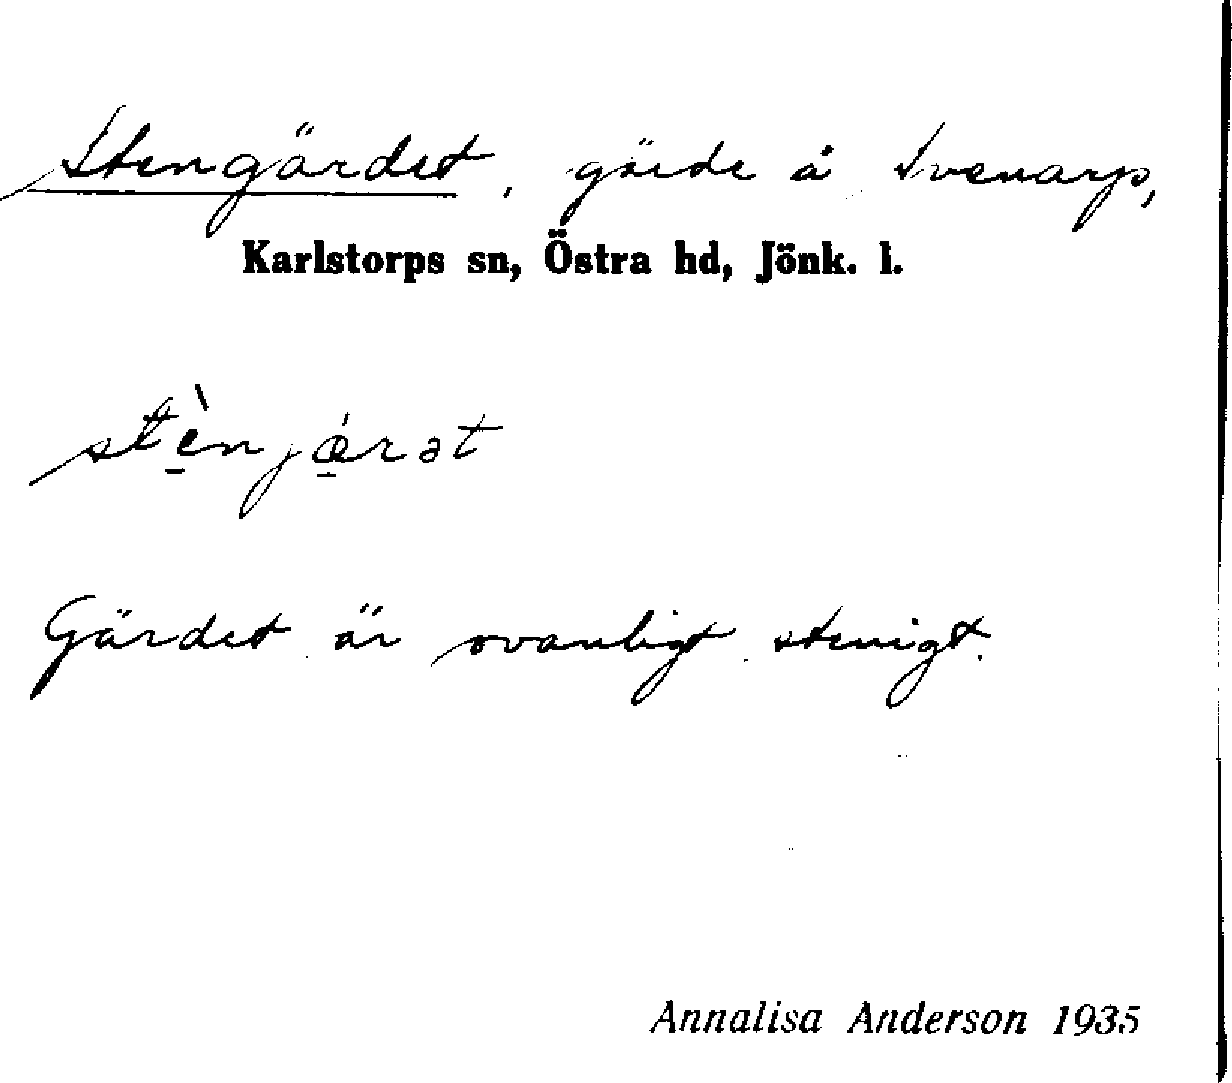 Stengärdet, gärde å Svenarp,
Karlstorps sn, Östra hd, Jönk. l.
stè̠njǽ̠rət
Gärdet är ovanligt stenigt.
Annalisa Anderson 1935